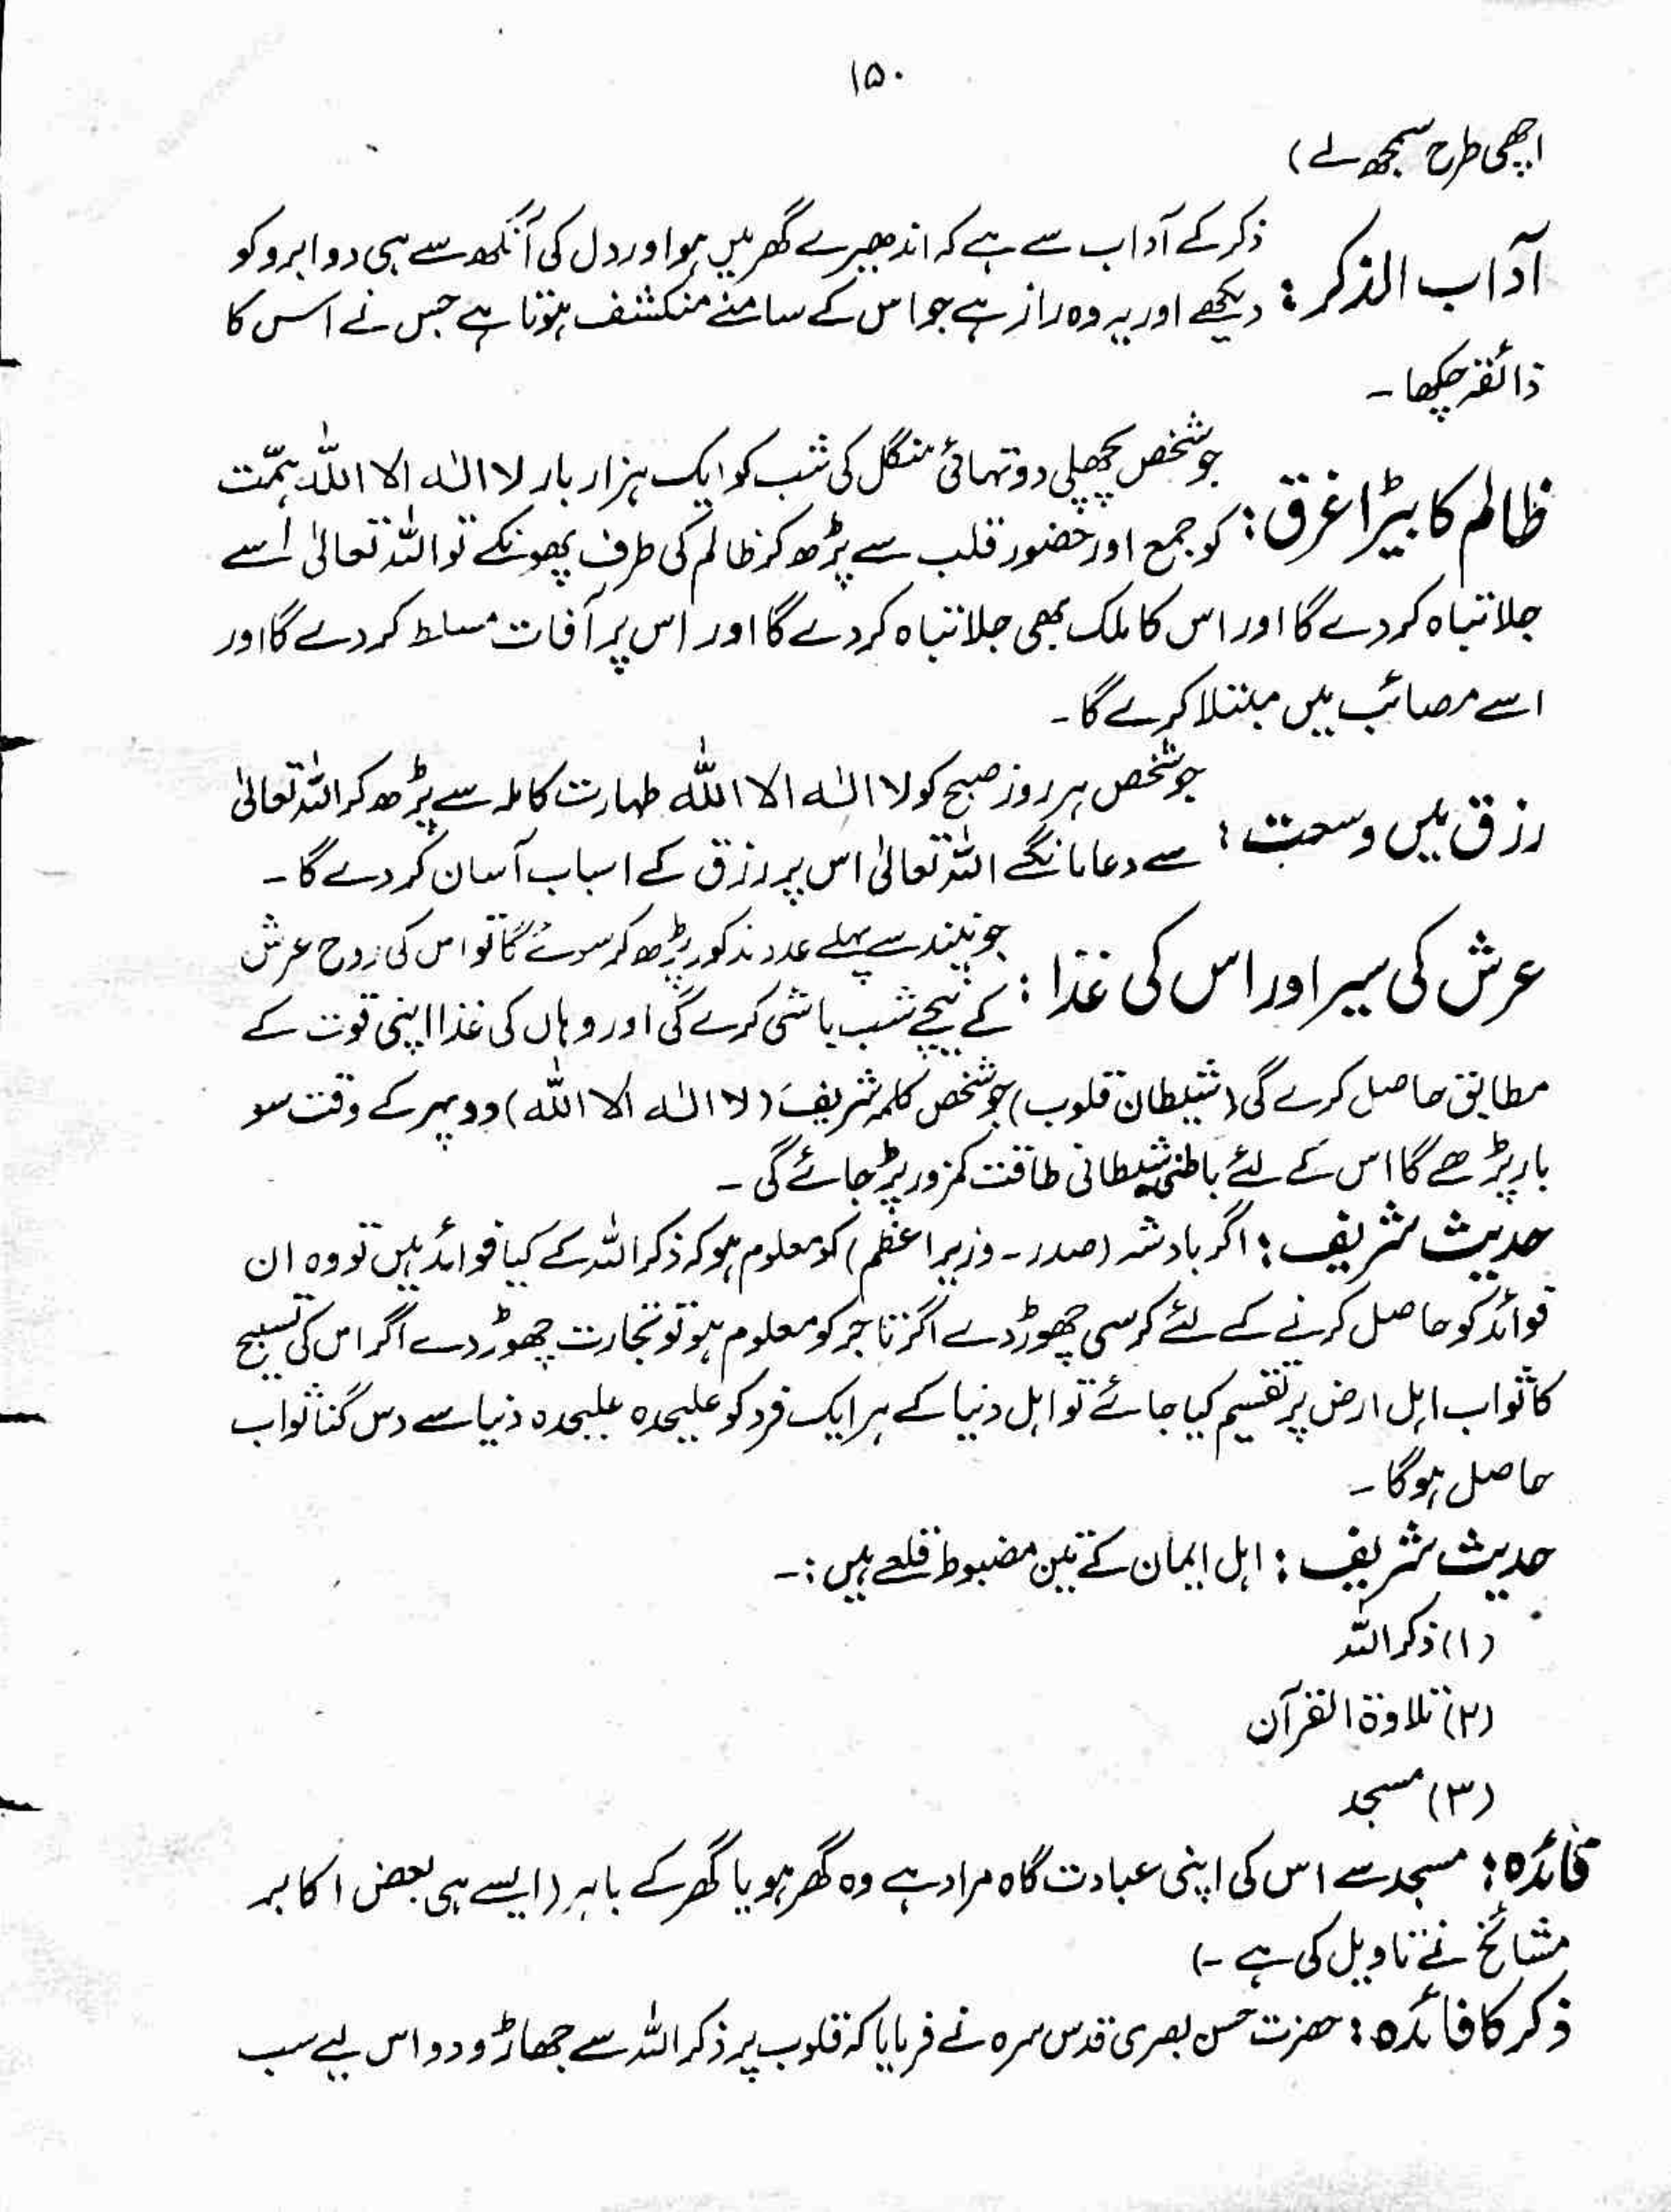 ۱۵۰
اچھی طرح سمجھ لے)
آداب الذکر : ذکر کے آداب سے ہے کہ اندھیرے گھر میں ہو اور دل کی آنکھ سے ہی دو ابرو کو
دیکھے اور یہ وہ راز ہے جو اس کے سامنے منکشف ہوتا ہے جس نے اس کا
ذائقہ چکھا ۔
ظالم کا بیڑا غرق : جو شخص پچھلی دو تہائی منگل کی شب کو ایک ہزار بار لا الٰہ الا اللّٰہ ہمّت
کو جمع اور حضور قلب سے پڑھ کر ظالم کی طرف پھونکے تو اللہ تعالیٰ اُسے
جلا تباہ کر دے گا اور اس کا ملک بھی جلا تباہ کر دے گا اور اس پر آفات مسلط کر دے گا اور
اسے مصائب میں مبتلا کرے گا ۔
رزق میں وسعت : جو شخص ہر روز صبح کو لا الٰہ الا اللّٰہ طہارت کاملہ سے پڑھ کر اللہ تعالیٰ
سے دعا مانگے اللہ تعالیٰ اس پر رزق کے اسباب آسان کر دے گا ۔
عرش کی سیر اور اس کی غذا : جو نیند سے پہلے عدد مذکور پڑھ کر سوئے گا تو اس کی روح عرش
کے نیچے شب باشی کرے گی اور وہاں کی غذا اپنی قوت کے
مطابق حاصل کرے گی (شیطان قلوب) جو شخص کلمہ شریف (لا الٰہ الا اللّٰہ) دوپہر کے وقت سو
بار پڑھے گا اس کے لئے باطنی شیطانی طاقت کمزور پڑ جائے گی ۔
حدیث شریف : اگر بادشہ (صدر ۔ وزیر اعظم) کو معلوم ہو کہ ذکر اللہ کے کیا فوائد ہیں تو وہ ان
فوائد کو حاصل کرنے کے لئے کرسی چھوڑ دے اگر تاجر کو معلوم ہو تو تجارت چھوڑ دے اگر اس کی تسبیح
کا ثواب اہل ارض پر تقسیم کیا جائے تو اہل دنیا کے ہر ایک فرد کو علیحدہ علیحدہ دنیا سے دس گنا ثواب
حاصل ہو گا ۔
حدیث شریف : اہل ایمان کے تین مضبوط قلعے ہیں :۔
(۱) ذکر اللہ
(۲) تلاوۃ القرآن
(۳) مسجد
فائدہ : مسجد سے اس کی اپنی عبادت گاہ مراد ہے وہ گھر ہو یا گھر کے باہر (ایسے ہی بعض اکابر
مشائخ نے تاویل کی ہے ۔)
ذکر کا فائدہ : حضرت حسن بصری قدس سرہ نے فرمایا کہ قلوب پر ذکر اللہ سے جھاڑو دو اس لیے سب